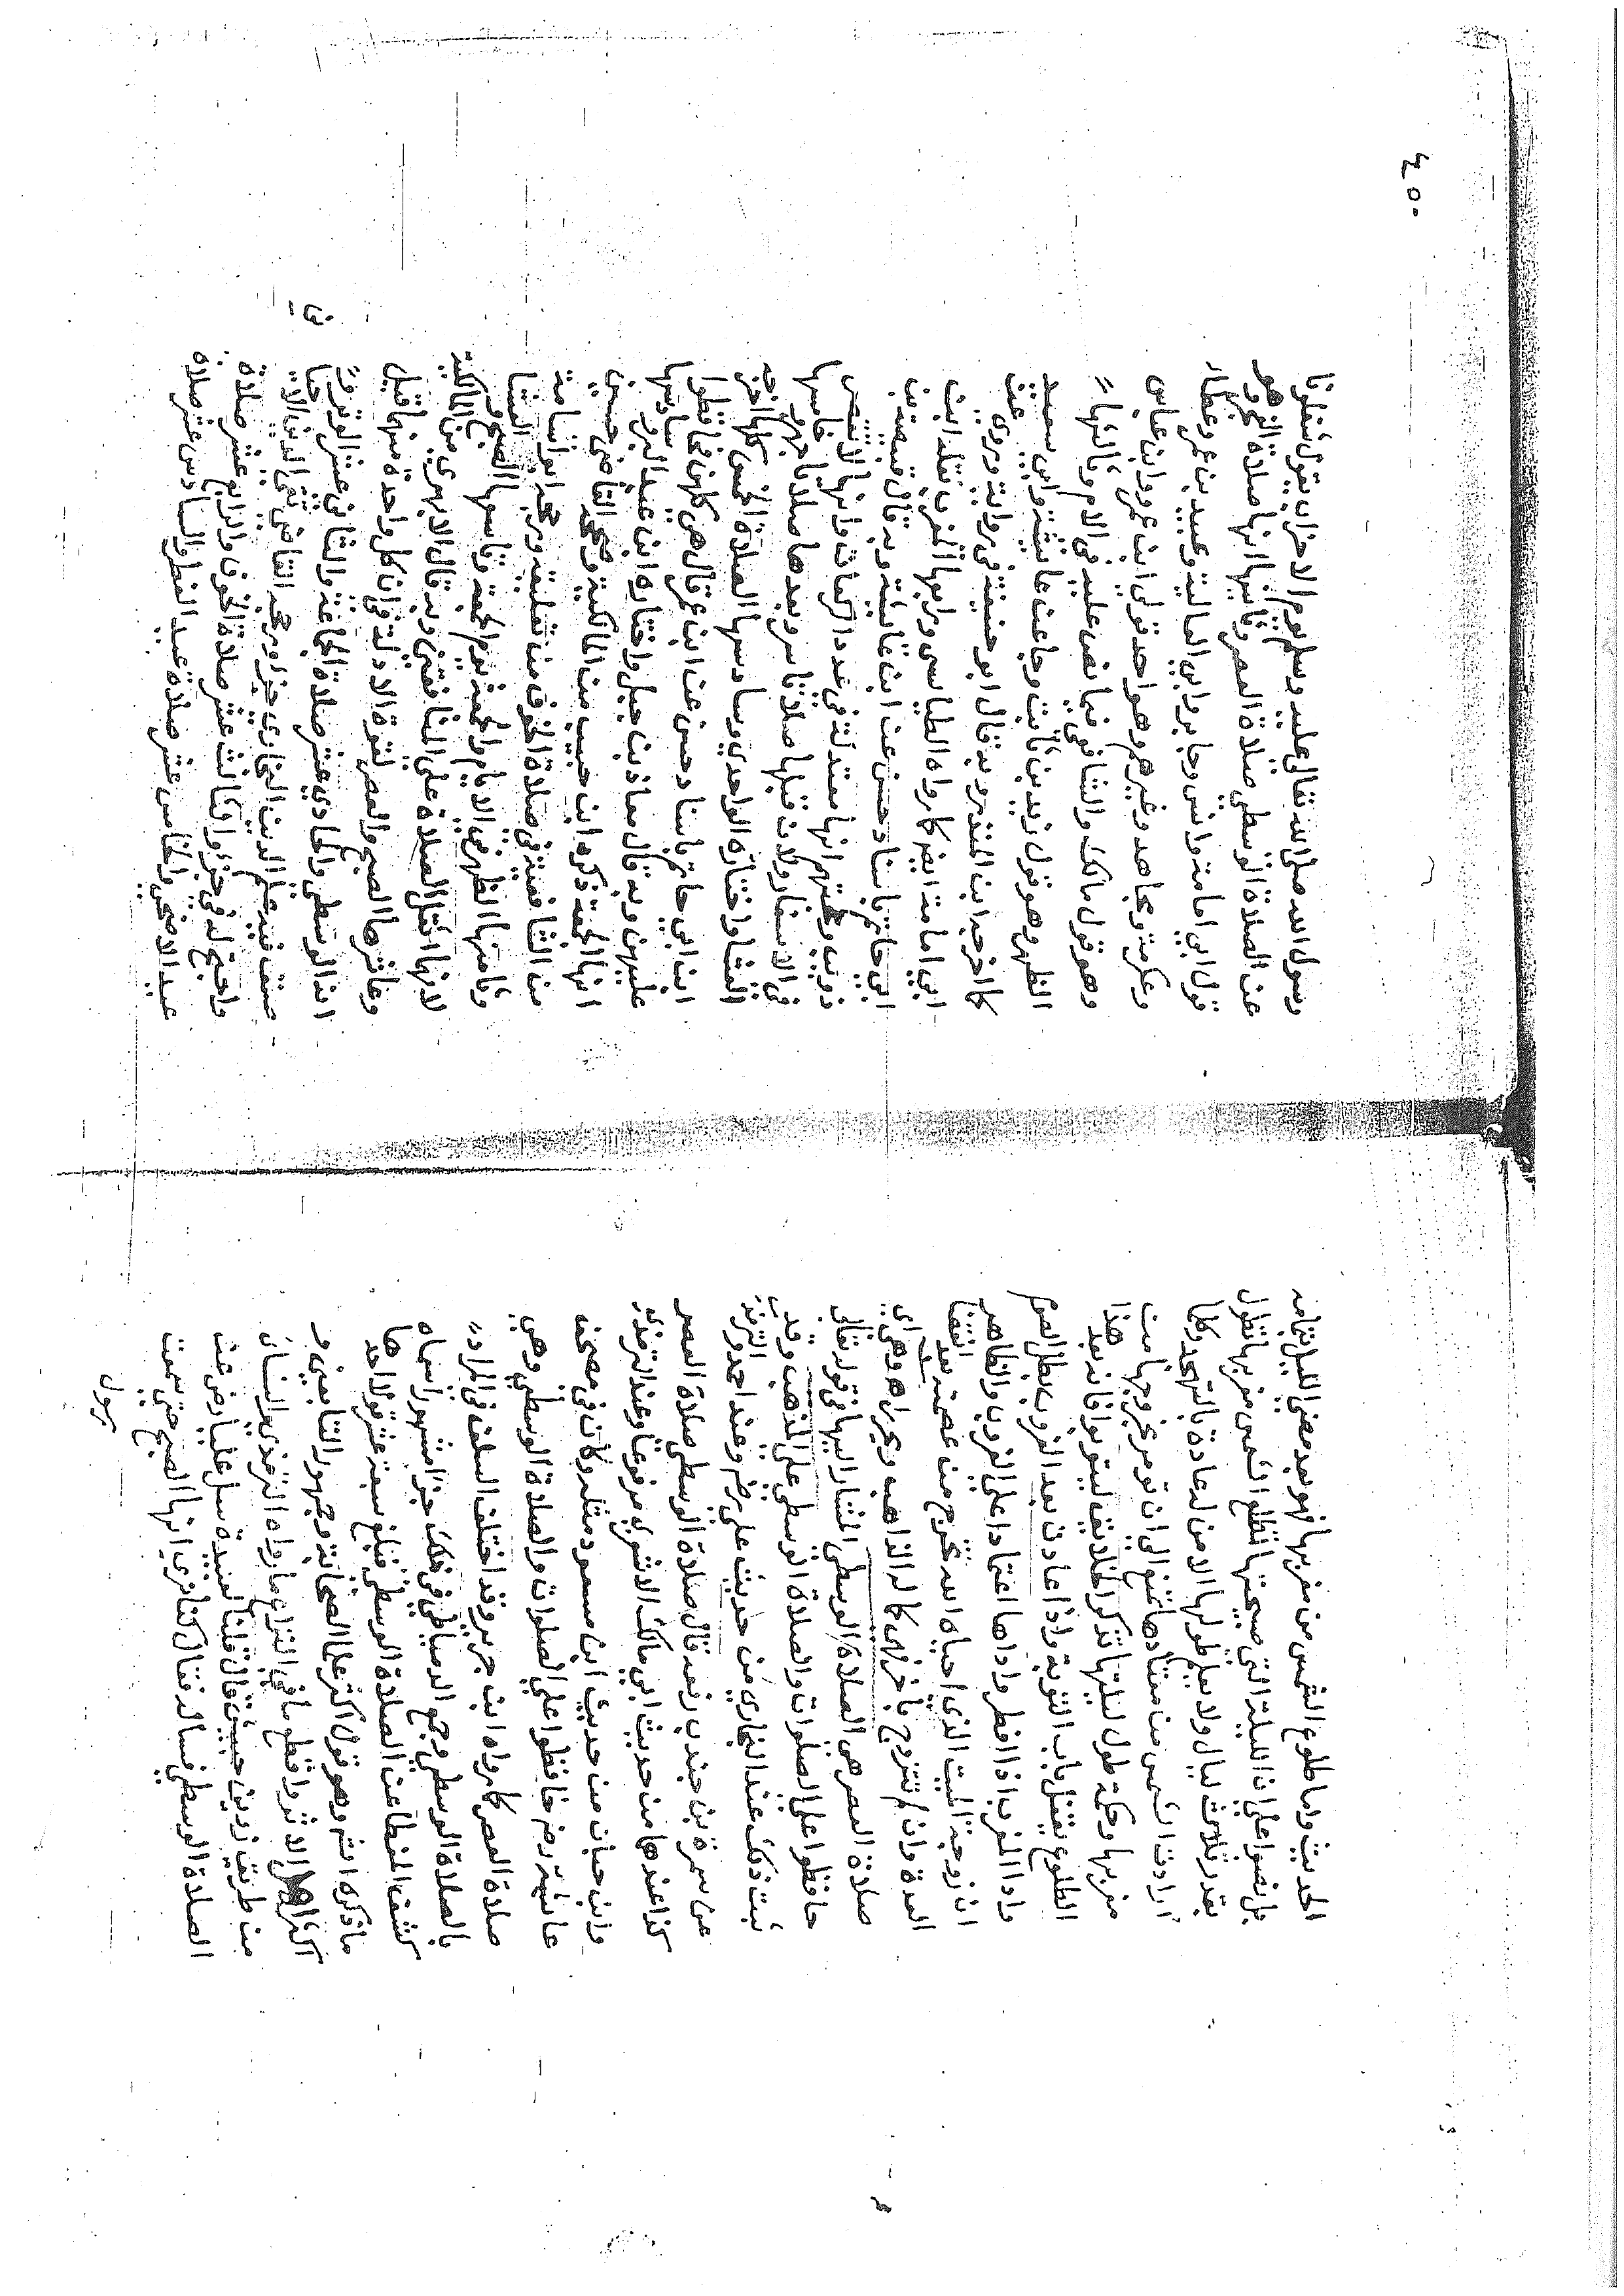 الحديث واما طلوع الشمس من مغربها فهو بعد مضي الليل بتمامه
بل نصوا على ان الليلة التي صبيحتها تطلع الشمس من مغربها تطول
بقدر ثلاث ليال ولا يعلم طولها الا من له عادة بالتهجد وكلما
ارادت الشمس من معتادها تمنع الى ان تومر بخروجها من
مغربها وحكمة طول ليلتها تذكر الخلايق ليتوبوا فانه بعد هذا
الطلوع يقفل باب التوبة واذا عادت بعد الغروب بطل الصوم
واداء المغرب اذا افطر واداها اعتمادا على الغروب والظاهر
ان زوجة الميت الذي احياه الله تخرج من عصمته بعد انقضاء
العدة وان لم تتزوج باخر ويحرر اهـ وهي اي
صلاة العصر هي الصلاة الوسطى المشار اليها في قوله تعالى
حافظوا على الصلوات والصلاة الوسطى على المذهب وقد
ثبت ذلك عند البخاري من حديث علي رض وعند احمد والترمذي
عن سمرة بن جندب رفعه قال صلاة الوسطى صلاة العصر
كذا عندها من حديث ابي مالك الاشعري مرفوعا وعند الترمذي
وابن حبان من حديث ابن مسعود مثله وكان في مصحف
عائشة رض حافظوا على الصلوات والصلاة الوسطى وهي
صلاة العصر كما رواه ابن جرير وقد اختلف السلف في المراد
بالصلاة الوسطى وجمع الدمياطي في ذلك جزأ مشهورا سماه
كشف المغطا عن الصلاة الوسطى فبلغ تسعة عشر قولا احدها
ما ذكره وهو قول اكثر علماء الصحابة وجمهور التابعين و
اكثر اهل الاثر واقطع ما في النزاع ما رواه الترمذي والنسائي
من طريق زر بن حبيش قال قلنا لعبيدة سل عليا رض عن
الصلاة الوسطى فساله فقال كنا نرى انها الصبح حتى سمعت
رسول
٤٥٠
رسول الله صلى الله تعالى عليه وسلم يوم الاحزاب يقول شغلونا
عن الصلاة الوسطى صلاة العصر وثانيها انها صلاة الفجر وهو
قول ابي امامة وانس وجابر وابي العالية وعبيد بن عمير وعطاء
وعكرمة ومجاهد وغيرهم وهو احد قولي ابن عمر وابن عباس
وهو قول مالك والشافعي فيما نص عليه في الام وثالثها
الظهر وهو قول زيد بن ثابت وجاء عن عائشة وابي سعيد
كما اخرجه ابن المنذر وبه قال ابو حنيفة في رواية وروي عن
ابي امامة ايضا كما رواه الطيالسي ورابعها المغرب نقله ابن
ابي حاتم باسناد حسن عن ابن عباس وبه قال قبيصة بن
ذويب وحجتهم انها معتدلة في عدد الركعات وانها لا تقصر
في الاسفار ولان قبلها صلاتا سر وبعدها صلاتا جهر وخامسها
العشا واختاره الواحدي وسادسها الصلاة الخمس كلها اخرجه
ابن ابي حاتم باسناد حسن عن ابن عمر قال هي كلهن فحافظوا
عليهن وبه قال معاذ بن جبل واختاره ابن عبد البر وسابعها
انها الجمعة ذكره ابن حبيب من المالكية وصححه القاضي حسين
من الشافعية في صلاة الخوف من تعليقه ورجحه ابو شامة
وثامنها الظهر في الايام والجمعة يوم الجمعة وتاسعها الصبح والعشا
لانها اثقل الصلاة على المنافقين وبه قال الابهري من المالكية
وعاشرها الصبح والعصر لقوة الادلة في ان كل واحدة منهما قيل
انه الوسطى والحادي عشر صلاة الجماعة والثاني عشر الوتر وقد
صنف فيه علم الدين السخاوي جزأ ورجحه القاضي تقي الدين
واحتج له في جزء والثالث عشر صلاة الخوف والرابع عشر صلاة
عيد الاضحى والخامس عشر صلاة عيد الفطر والسادس عشر صلاة